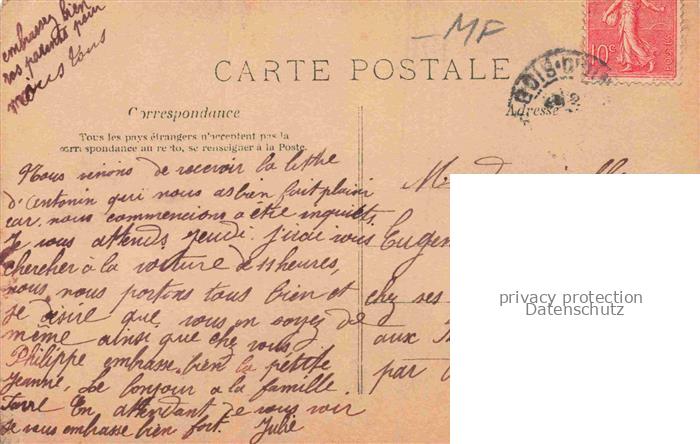 embrassez bien
vos parents pour
nous tous
MF
CARTE POSTALE
10c
BOIS-D
Correspondance
Tous les pays étrangers n'acceptent pas la
correspondance au recto, se renseigner à la Poste.
Adresse
Nous venons de recevoir la lettre
d'Antonin qui nous as bien fait plaisir
car nous commencions a être inquiets.
Je vous attends jeudi j'irai vous
chercher à la voiture d 11 heures,
nous, nous portons tous bien et
je désire que vous en soyez de
même ainsi que chez vous
Philippe embrasse bien la petite
Jeanne, Le bonjour a la famille
Farre En attendant de vous voir
Je vous embrasse bien fort. Julie
Mademoiselle
Eugen
chez ses
aux
par
privacy protection
Datenschutz